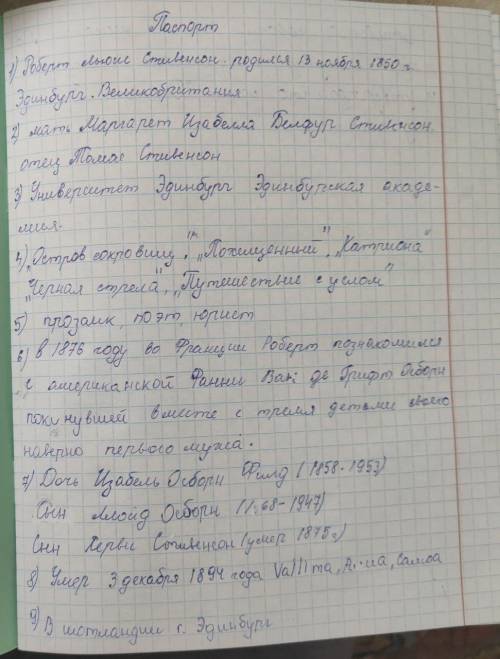 Паспорт
1) Роберт Льюис Стивенсон родился 13 ноября 1850 г.
Эдинбург. Великобритания
2) мать Маргарет Изабелла Белфур Стивенсон
отец Томас Стивенсон
3) Университет Эдинбург Эдинбургская акаде-
мия.
4) „Остров сокровищ", „Похищенный", „Катриона"
„Черная стрела", „Путешествие с услом"
5) прозаик, поэт, юрист
6) в 1876 году во Франции Роберт познакомился
с американской Фанни Ван де Грифт Осборн
покинувшей вместе с тремя детьми своего
наверно первого мужа.
7) Дочь Изабель Осборн Филд (1858-1953)
Сын Ллойд Осборн (1868-1947)
Сын Херви Стивенсон (умер 1875г)
8) Умер 3 декабря 1894 года Самоа
9) В шотландии г. Эдинбург